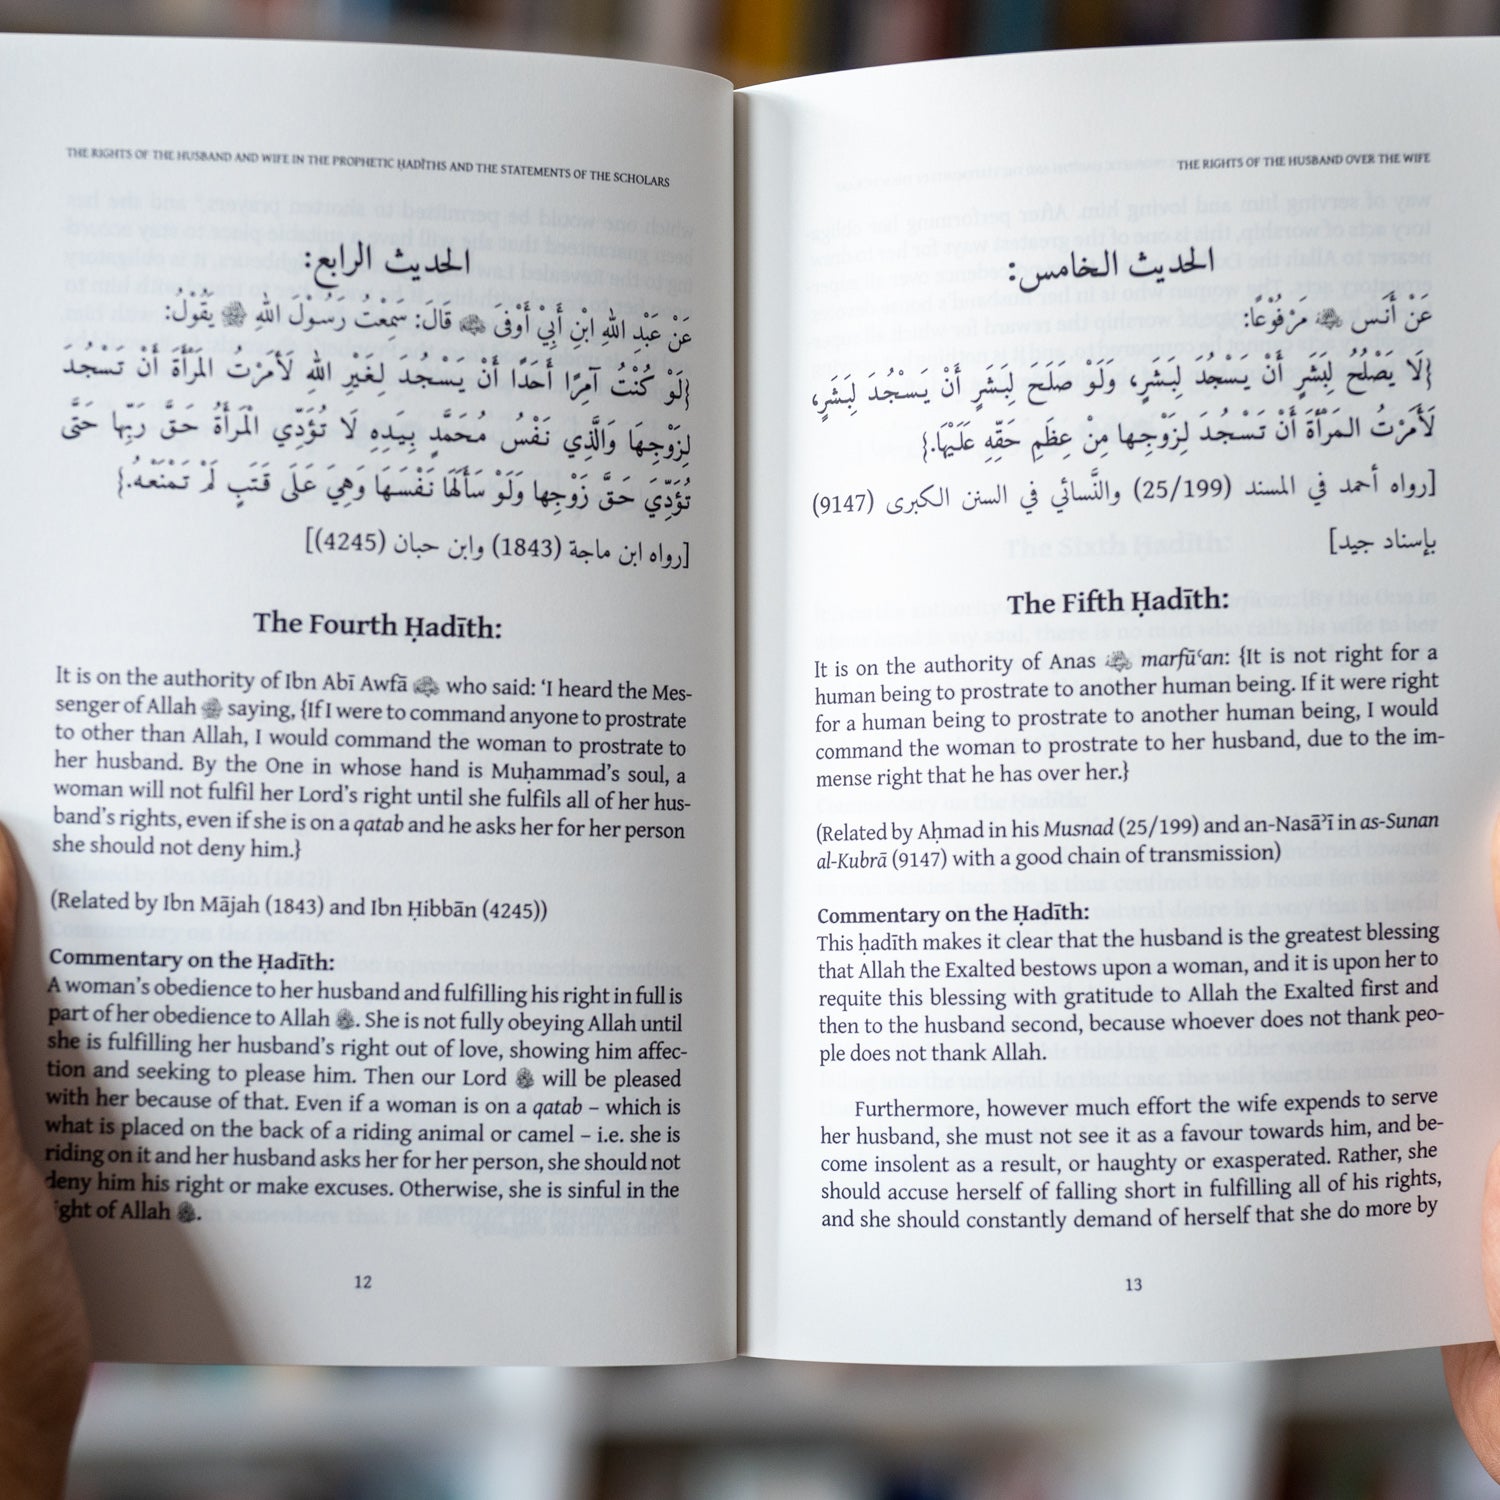 THE RIGHTS OF THE HUSBAND AND WIFE IN THE PROPHETIC ḤADĪTHS AND THE STATEMENTS OF THE SCHOLARS
الحديث الرابع:
عَنْ عَبْدِ اللهِ ابْنِ أَبِيْ أَوْفَى ﵁ قَالَ: سَمِعْتُ رَسُوْلَ اللهِ ﷺ يَقُوْلُ:
{لَوْ كُنْتُ آمِرًا أَحَدًا أَنْ يَسْجُد لِغَيْرِ اللهِ لَأَمَرْتُ المَرْأَةَ أَنْ تَسْجُدَ
لِزَوْجِهَا وَالَّذِي نَفْسُ مُحَمَّدٍ بِيَدِهِ لَا تُؤَدِّي الْمَرْأَةُ حَقَّ رَبِّها حَتَّى
تُؤَدِّيَ حَقَّ زَوْجِها وَلَوْ سَأَلَهَا نَفْسَهَا وَهِيَ عَلَى قَتَبٍ لَمْ تَمْنَعْهُ.}
[رواه ابن ماجة (1843) وابن حبان (4245)]
The Fourth Ḥadīth:
It is on the authority of Ibn Abī Awfā ﵁ who said: ‘I heard the Mes-
senger of Allah ﷺ saying, {If I were to command anyone to prostrate
to other than Allah, I would command the woman to prostrate to
her husband. By the One in whose hand is Muḥammad’s soul, a
woman will not fulfil her Lord’s right until she fulfils all of her hus-
band’s rights, even if she is on a qatab and he asks her for her person
she should not deny him.}
(Related by Ibn Mājah (1843) and Ibn Ḥibbān (4245))
Commentary on the Ḥadīth:
A woman’s obedience to her husband and fulfilling his right in full is
part of her obedience to Allah. She is not fully obeying Allah until
she is fulfilling her husband’s right out of love, showing him affec-
tion and seeking to please him. Then our Lord will be pleased
with her because of that. Even if a woman is on a qatab – which is
what is placed on the back of a riding animal or camel – i.e. she is
riding on it and her husband asks her for her person, she should not
deny him his right or make excuses. Otherwise, she is sinful in the
ight of Allah.
12
THE RIGHTS OF THE HUSBAND OVER THE WIFE
الحديث الخامس:
عَنْ أَنَس ﵁ مَرْفُوْعًا:
{لَا يَصْلُحُ لِبَشَرٍ أَنْ يَسْجُدَ لِبَشَرٍ، وَلَوْ صَلَحَ لِبَشَرٍ أَنْ يَسْجُدَ لِبَشَرٍ،
لَأَمَرْتُ المَرْأَةَ أَنْ تَسْجُدَ لِزَوْجِها مِنْ عِظَمِ حَقِّهِ عَلَيْهَا.}
[رواه أحمد في المسند (25/199) والنَّسائي في السنن الكبرى (9147)
بإسناد جيد]
The Fifth Ḥadīth:
It is on the authority of Anas ﵁ marfūʿan: {It is not right for a
human being to prostrate to another human being. If it were right
for a human being to prostrate to another human being, I would
command the woman to prostrate to her husband, due to the im-
mense right that he has over her.}
(Related by Aḥmad in his Musnad (25/199) and an-Nasāʾī in as-Sunan
al-Kubrā (9147) with a good chain of transmission)
Commentary on the Ḥadīth:
This ḥadīth makes it clear that the husband is the greatest blessing
that Allah the Exalted bestows upon a woman, and it is upon her to
requite this blessing with gratitude to Allah the Exalted first and
then to the husband second, because whoever does not thank peo-
ple does not thank Allah.
Furthermore, however much effort the wife expends to serve
her husband, she must not see it as a favour towards him, and be-
come insolent as a result, or haughty or exasperated. Rather, she
should accuse herself of falling short in fulfilling all of his rights,
and she should constantly demand of herself that she do more by
13